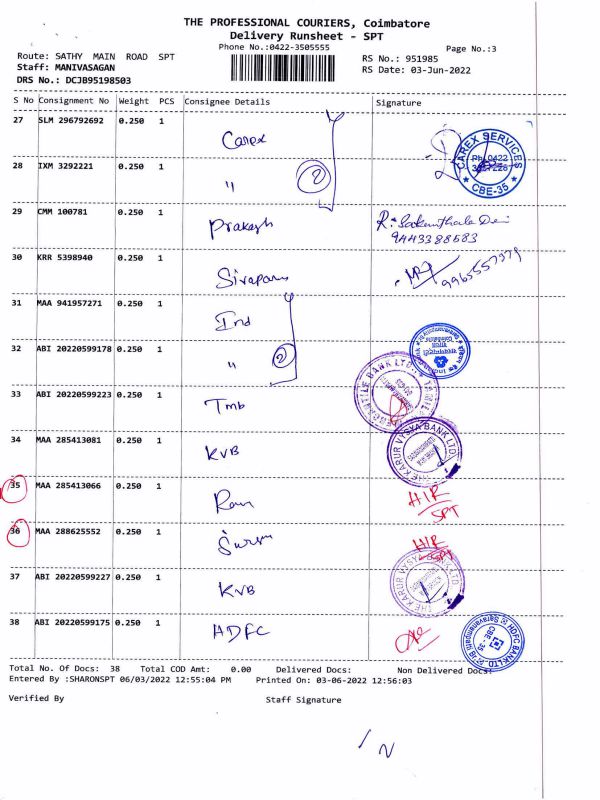 THE PROFESSIONAL COURIERS, Coimbatore
Delivery Runsheet - SPT
Phone No.:0422-3505555
Page No.:3
Route: SATHY MAIN ROAD SPT
RS No.: 951985
Staff: MANIVASAGAN
RS Date: 03-Jun-2022
DRS No.: DCJB95198503
S No Consignment No Weight PCS Consignee Details Signature
27 SLM 296792692 0.250 1 Carex
CAREX SERVICES
Ph: 0422
CBE-35
28 IXM 3292221 0.250 1 " 2
29 CMM 100781 0.250 1 Prakash R. Sakunthala Devi
9443388583
30 KRR 5398940 0.250 1
31 MAA 941957271 0.250 1 Ind
32 ABI 20220599178 0.250 1 " 2
33 ABI 20220599223 0.250 1 Tmb
34 MAA 285413081 0.250 1 KVB
THE KARUR VYSYA BANK LTD
35 MAA 285413066 0.250 1 Ram H/R
SPT
36 MAA 288625552 0.250 1 H/R
SPT
37 ABI 20220599227 0.250 1 KVB
THE KARUR VYSYA BANK LTD
38 ABI 20220599175 0.250 1 HDFC
HDFC BANK LTD
CBE - 35
Total No. Of Docs: 38 Total COD Amt: 0.00 Delivered Docs: Non Delivered Docs:
Entered By :SHARONSPT 06/03/2022 12:55:04 PM Printed On: 03-06-2022 12:56:03
Verified By Staff Signature